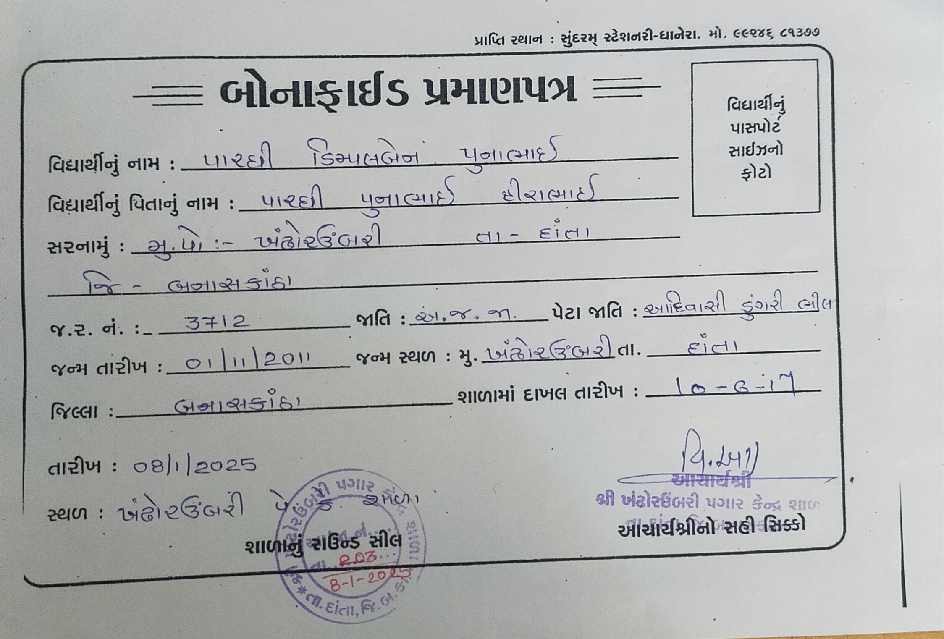 પ્રાપ્તિ સ્થાન : સુંદરમ્ સ્ટેશનરી-ધાનેરા. મો. ૯૯૨૪૬ ૮૧૩૭૭
બોનાફાઈડ પ્રમાણપત્ર
વિદ્યાર્થીનું
પાસપોર્ટ
સાઈઝનો
ફોટો
વિદ્યાર્થીનું નામ : પારઘી ડિમ્પલબેન પુનાભાઈ
વિદ્યાર્થીનું પિતાનું નામ : પારઘી પુનાભાઈ હીરાભાઈ
સરનામું : મુ.પો :- ખંઢોરઉંબરી તા - દાંતા
જિ - બનાસકાંઠા
જ.ર. નં. : 3712 જાતિ : અ.જ.જા. પેટા જાતિ : આદિવાસી ડુંગરી ભીલ
જન્મ તારીખ : 01/11/2011 જન્મ સ્થળ : મુ. ખંઢોરઉંબરી તા. દાંતા
જિલ્લા : બનાસકાંઠા શાળામાં દાખલ તારીખ : 10-6-17
તારીખ : 08/1/2025
સ્થળ : ખંઢોરઉંબરી પે કે શાળા
શાળાનું રાઉન્ડ સીલ
આચાર્યશ્રી
શ્રી ખંઢોરઉંબરી પગાર કેન્દ્ર શાળા
આચાર્યશ્રીનો સહી સિક્કો
203
8-1-2025
તા. દાંતા, જિ. બ.કાં.